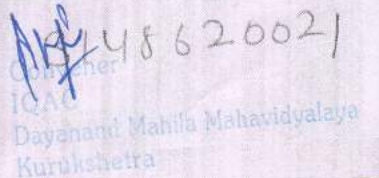 9148620021
Convener
IQAC
Dayanand Mahila Mahavidyalaya
Kurukshetra